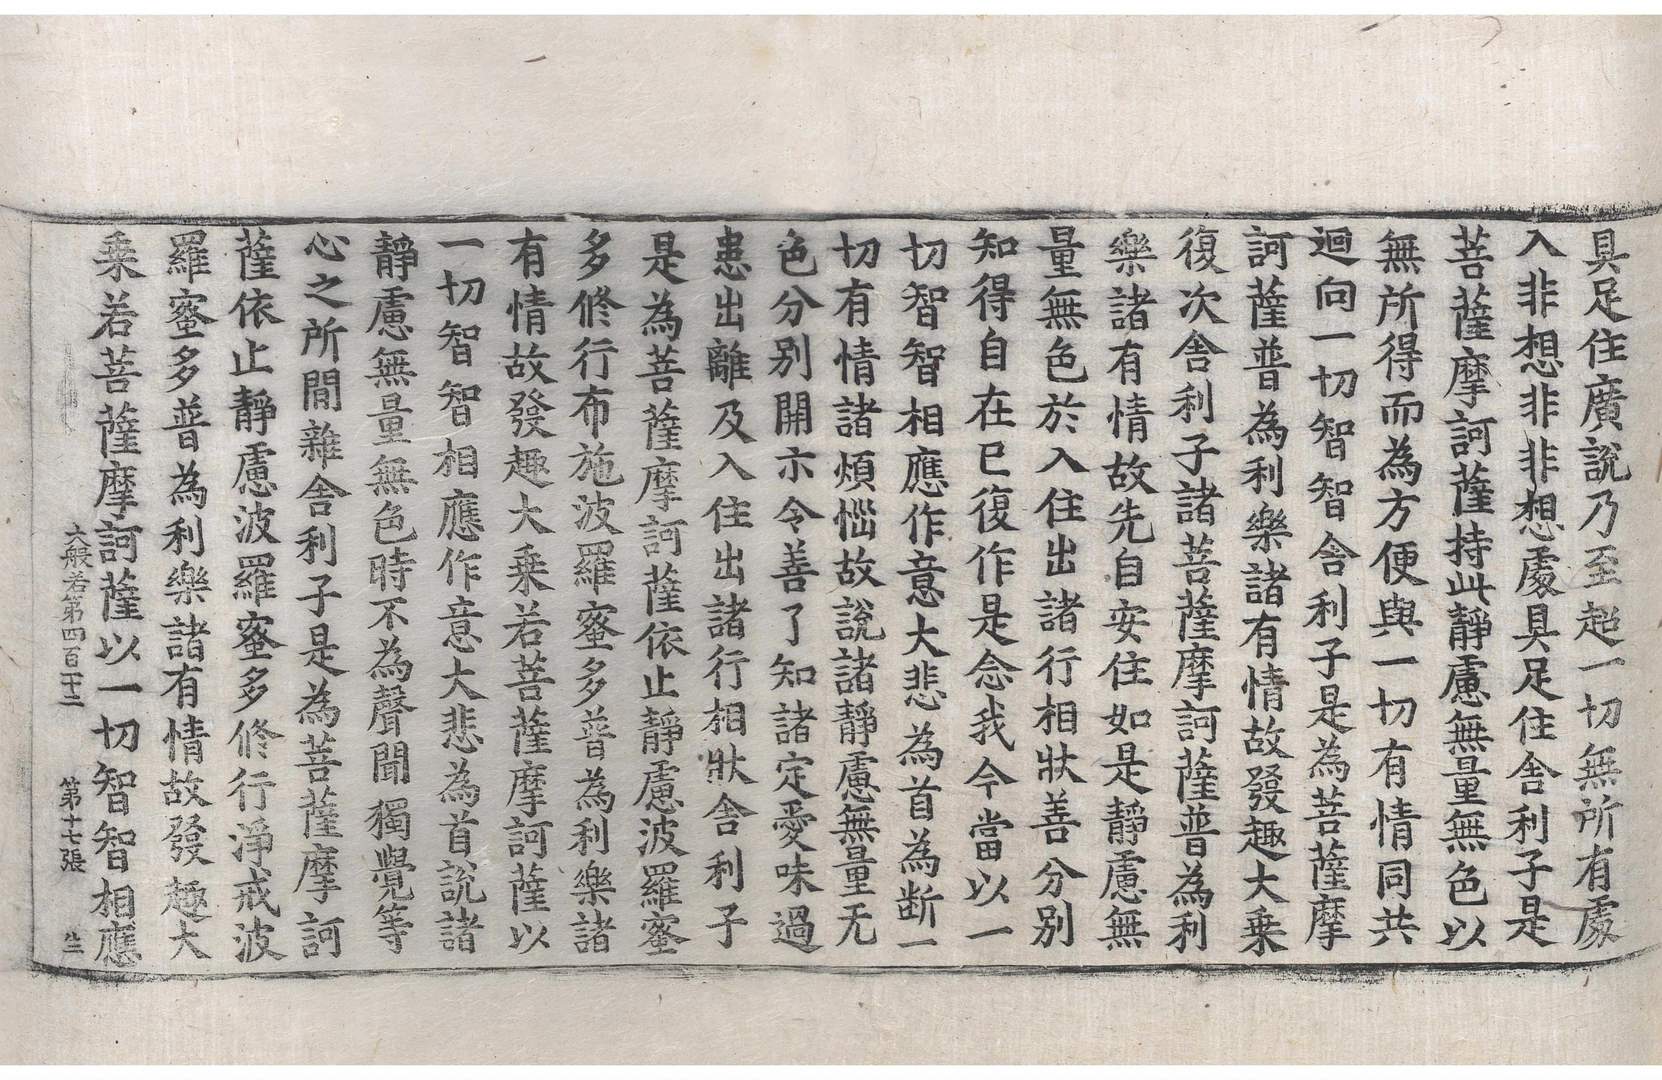 具足住廣說乃至超一切無所有處
入非想非非想處具足住舍利子是
菩薩摩訶薩持此靜慮無量無色以
無所得而為方便與一切有情同共
迴向一切智智舍利子是為菩薩摩
訶薩普為利樂諸有情故發趣大乗
復次舍利子諸菩薩摩訶薩普為利
樂諸有情故先自安住如是靜慮無
量無色於入住出諸行相狀善分別
知得自在已復作是念我今當以一
切智智相應作意大悲為首為斷一
切有情諸煩惱故說諸靜慮無量无
色分別開示令善了知諸定愛味過
患出離及入住出諸行相狀舍利子
是為菩薩摩訶薩依止靜慮波羅蜜
多修行布施波羅蜜多普為利樂諸
有情故發趣大乗若菩薩摩訶薩以
一切智智相應作意大悲為首說諸
靜慮無量無色時不為聲聞獨覺等
心之所間雜舍利子是為菩薩摩訶
薩依止靜慮波羅蜜多修行淨戒波
羅蜜多普為利樂諸有情故發趣大
乗若菩薩摩訶薩以一切智智相應
大般若第四百十三 第十七張